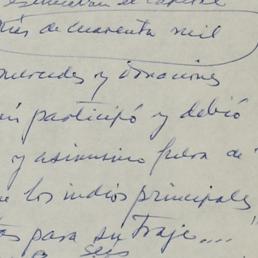 el capital
de cuarenta mil
mercedes y donaciones
participó y debió
y asimismo fuera de
los indios principales
para su traje....